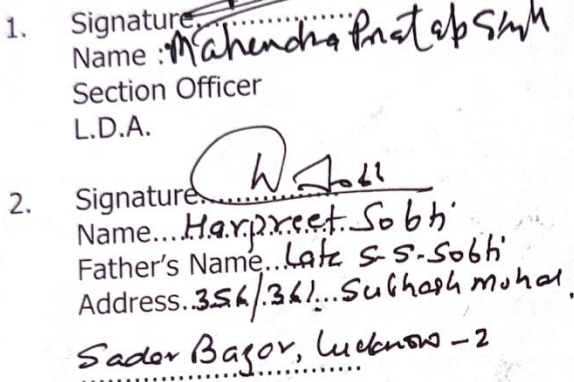 1. Signature..................
Name : Mahendra Pratap Singh
Section Officer
L.D.A.
2. Signature..................
Name....Harpreet Sobti
Father's Name...Late S-S-Sobti
Address..356/361...Subhash mohal,
Sador Bazor, Lucknow-2